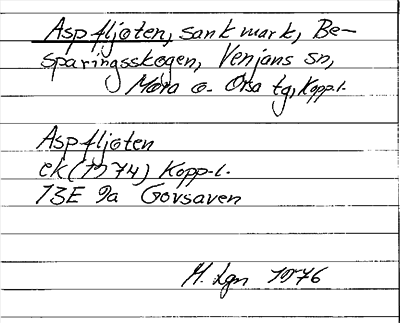 Aspfljöten, sankmark, Be-
sparingsskogen, Venjans sn,
Mora o. Orsa tg, Kopp.l.
Aspfljöten
ek (1974) Kopp-l.
13E 9a Gövsaven
M. Lgn 1976